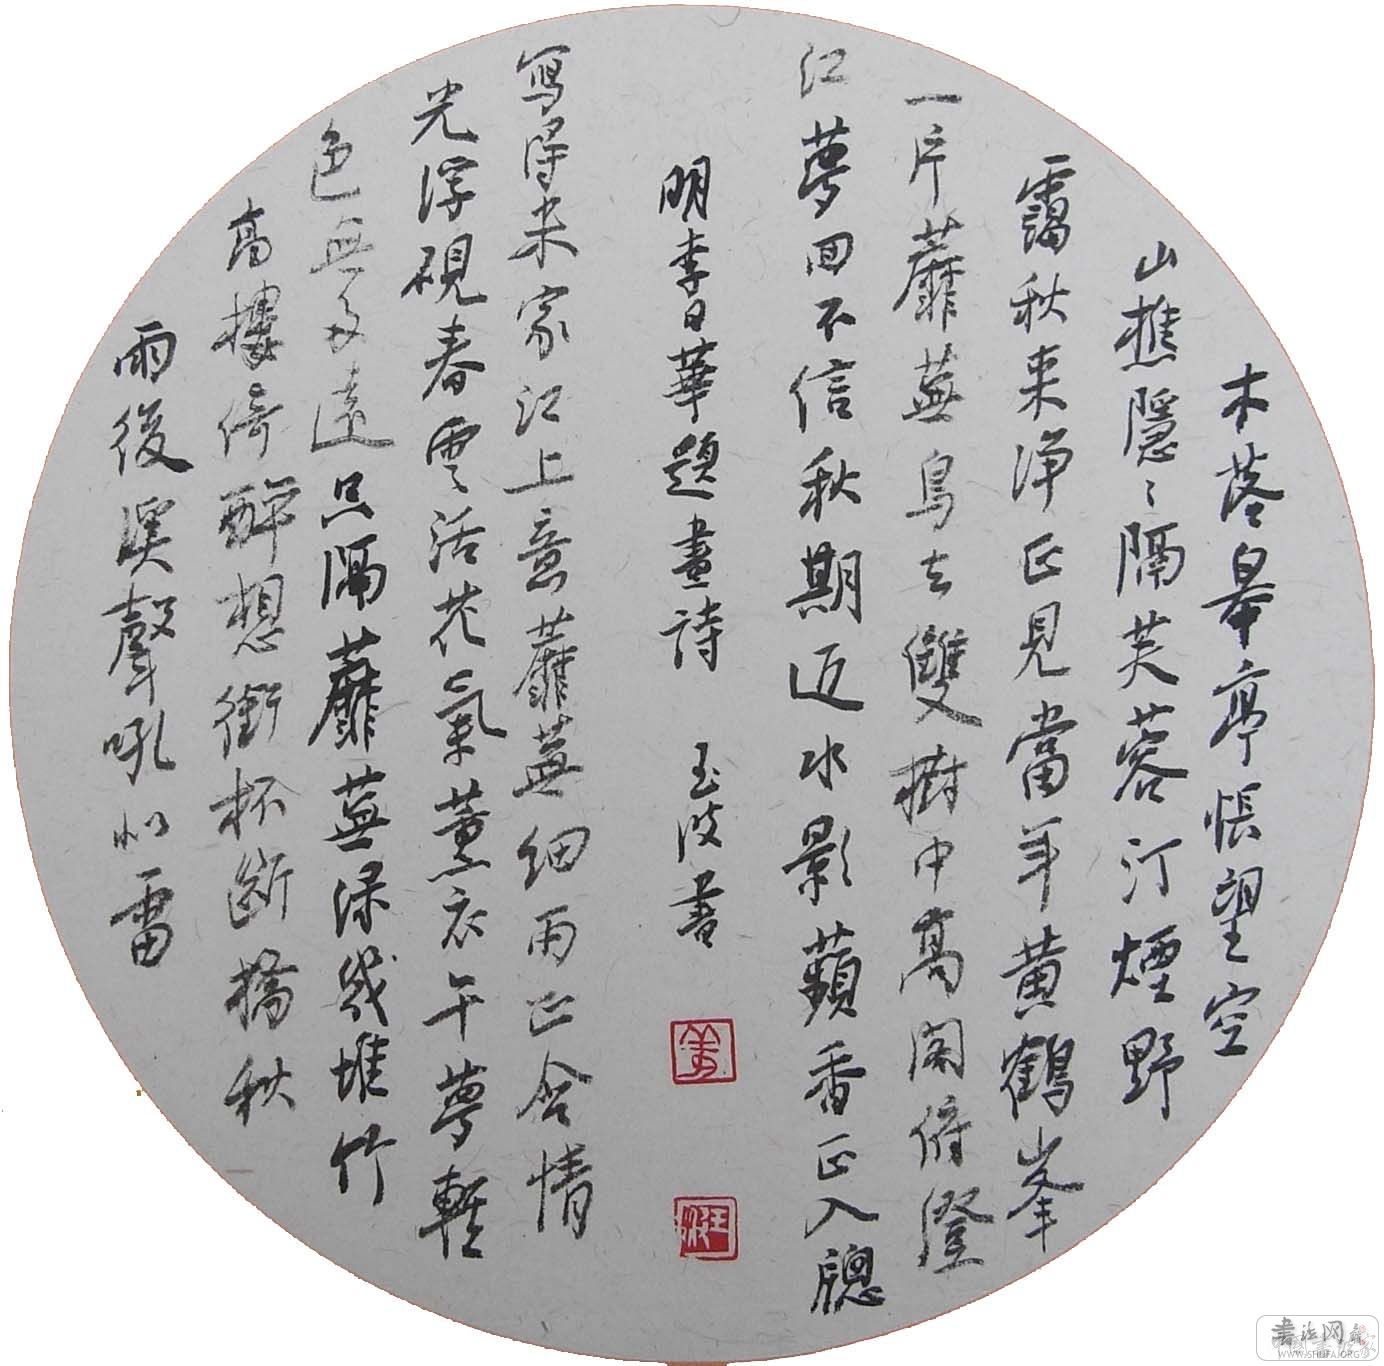 木落皋亭悵望空
山樵隱〻隔芙蓉汀煙野
靄秋来净正見當年黄鶴峯
一片蘼蕪鳥去雙樹中高閣俯澄
江夢回不信秋期近水影蘋香正入牕
明李日華題畫詩 玉波書
寫得米家江上意蘼蕪細雨正含情
光浮硯春雲活花氣薰衣午夢輕
色無多遠只隔蘼蕪渌幾堆竹
高樓倚醉想銜杯斷橋秋
雨後溪聲吼似雷
書法网
WWW.SHUFA.ORG